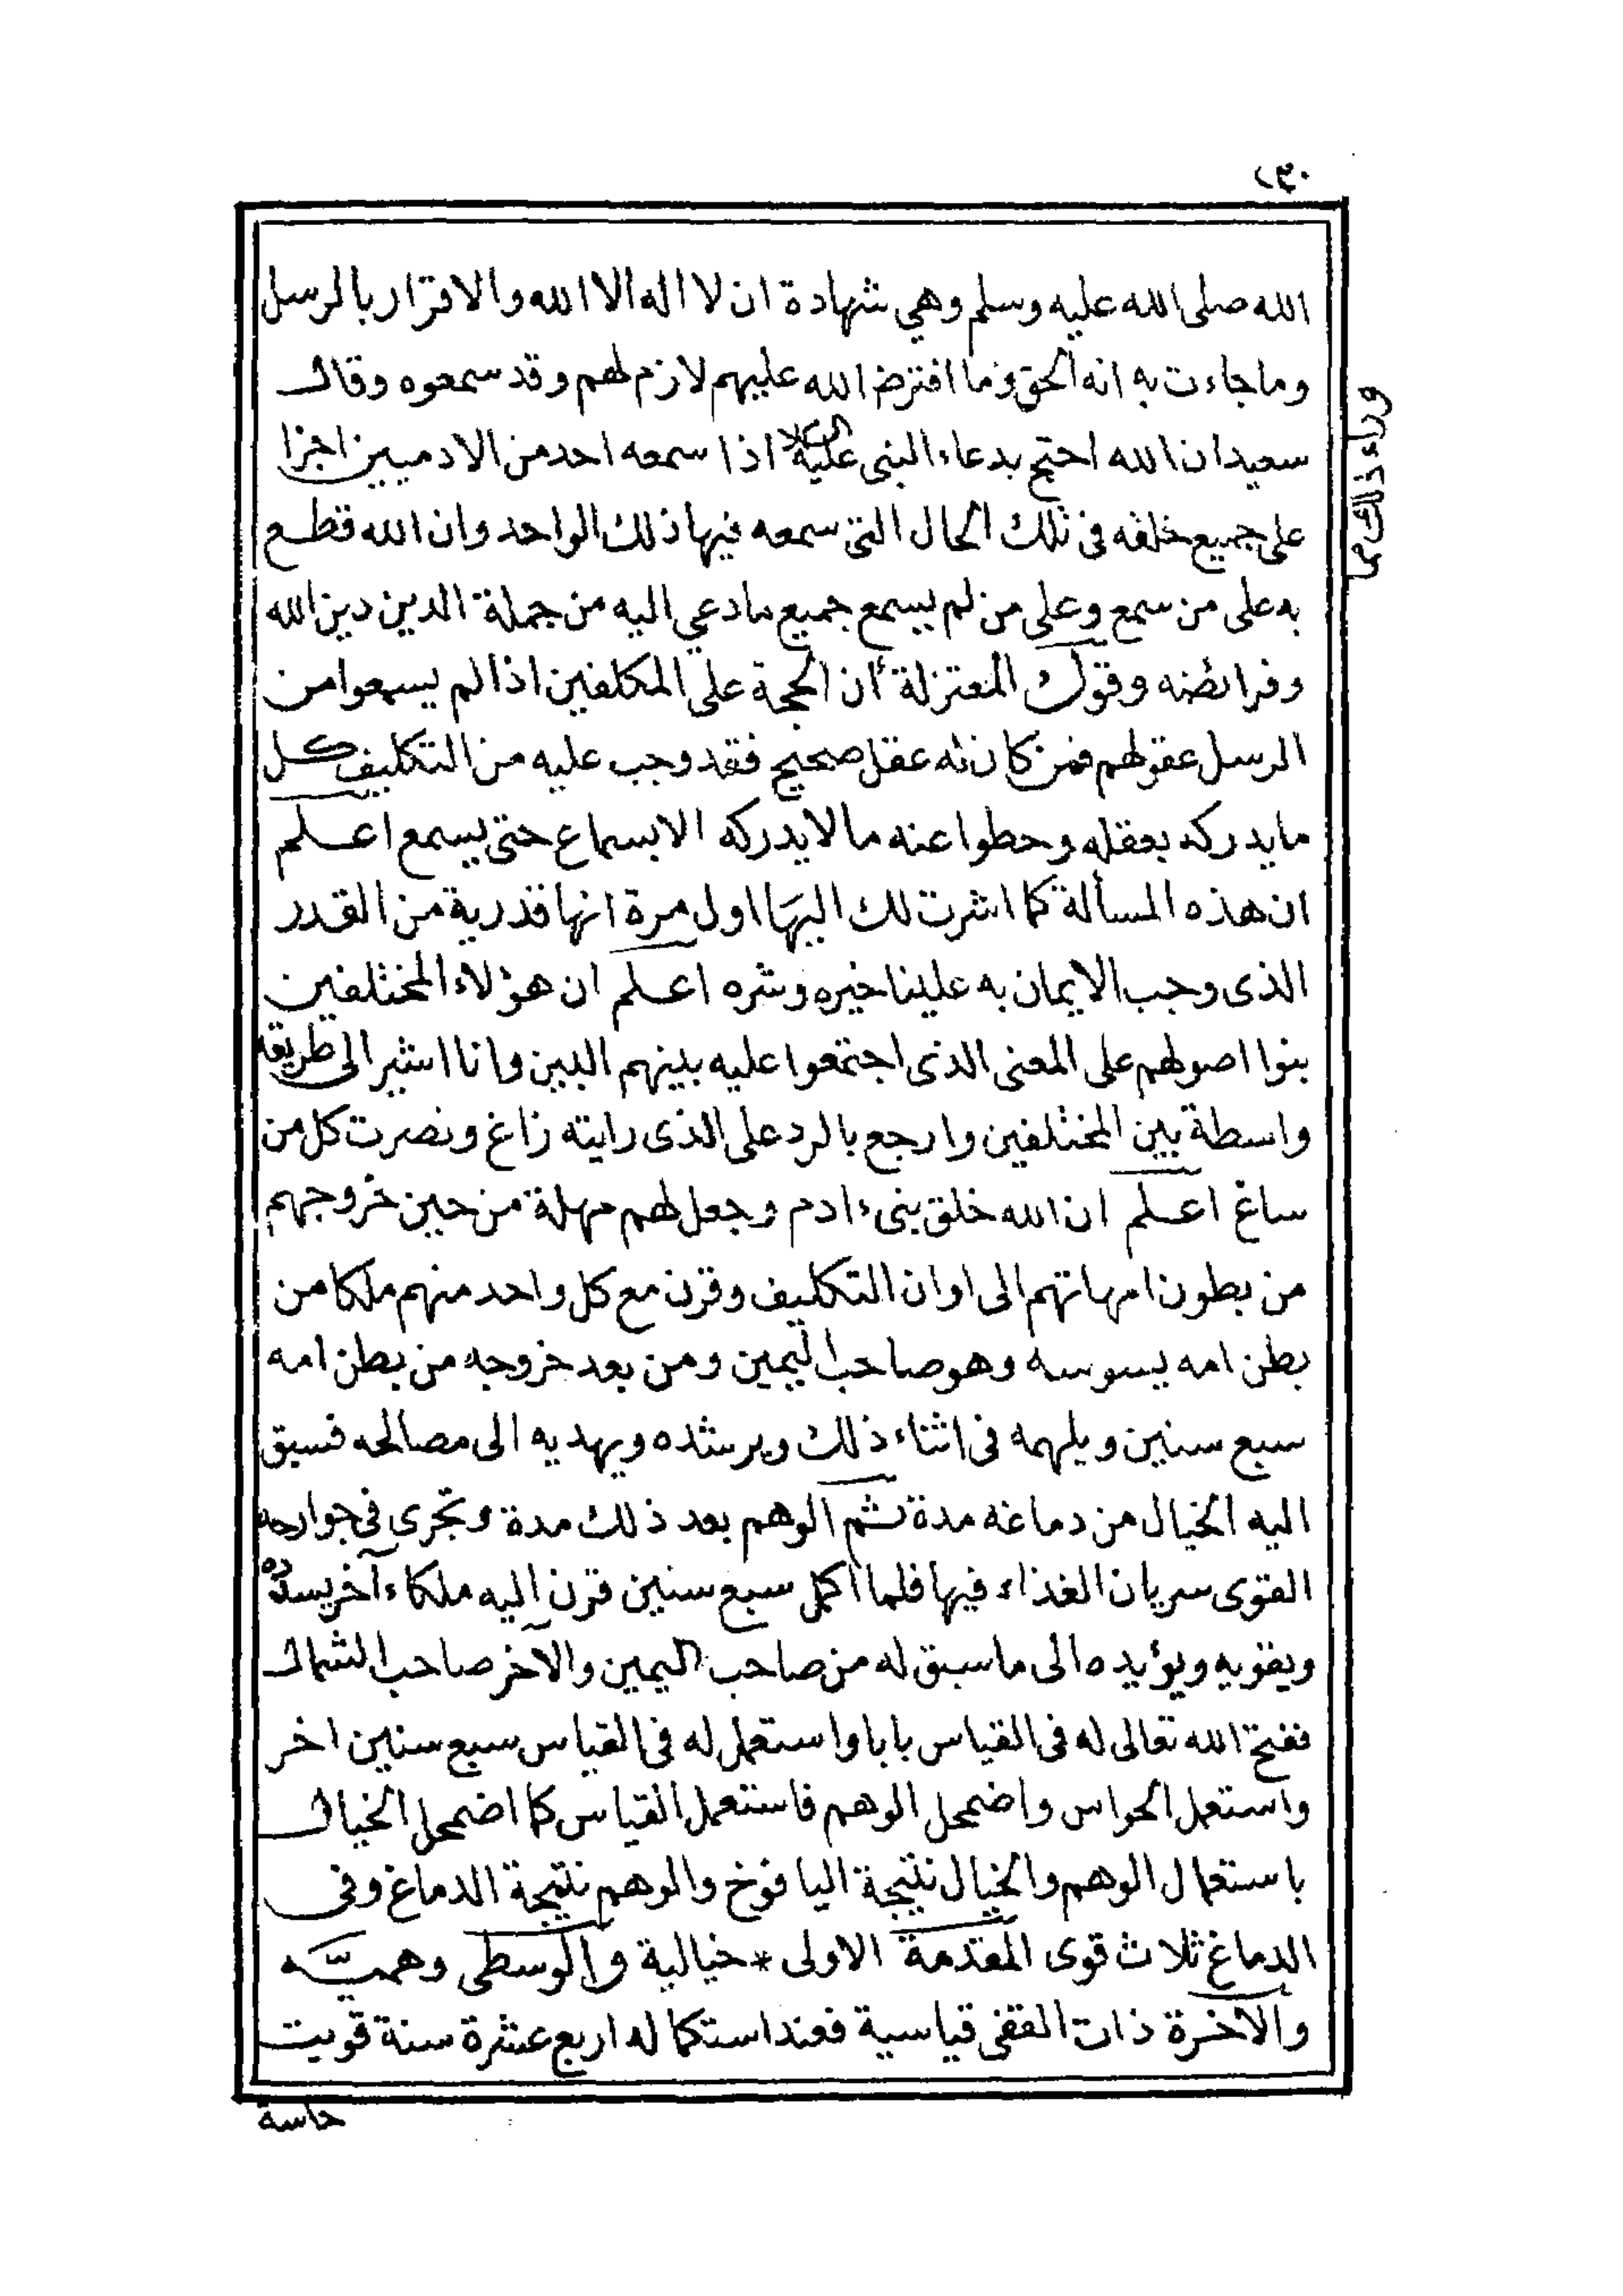 ١٣٠
الله صلى الله عليه وسلم وهي شهادة ان لا اله الا الله والاقرار بالرسل
وما جاءت به انه الحق وما افترض الله عليهم لازم لهم وقد سمعوه وقال
سعيد ان الله احتج بدعاء النبى عليه السلام اذا سمعه احد من الادميين اجزا
على جميع خلقه فى تلك الحال التى سمعه فيها ذلك الواحد وان الله قطع
به على من سمع وعلى من لم يسمع جميع ما دعي اليه من جملة الدين دين الله
وفرائضه وقول المعتزلة أن الحجة على المكلفين اذا لم يسمعوا من
الرسل عقولهم فمن كان له عقل صحيح فقد وجب عليه من التكليف كل
ما يدركه بعقله وحطوا عنه ما لا يدركه الا بسماع حتى يسمع اعلم
ان هذه المسألة كما اشرت لك اليها اول مرة انها قدرية من القدر
الذى وجب الايمان به علينا خيره وشره اعلم ان هؤلاء المختلفين
بنوا اصولهم على المعنى الذى اجتمعوا عليه بينهم البين وانا اشير الى طريقة
واسطة بين المختلفين وارجع بالرد على الذى رايته زاغ ونصرت كل من
ساغ اعلم ان الله خلق بنىء ادم وجعل لهم مهلة من حين خروجهم
من بطون امهاتهم الى اوان التكليف وقرن مع كل واحد منهم ملكا من
بطن امه يسوسه وهو صاحب اليمين ومن بعد خروجه من بطن امه
سبع سنين ويلهمه فى اثناء ذلك ويرشده ويهديه الى مصالحه فسبق
اليه الخيال من دماغه مدة ثم الوهم بعد ذلك مدة وتجرى فى جوارحه
القوى سريان الغذاء فيها فلما اكمل سبع سنين قرن اليه ملكا ءآخر يسدده
ويقويه ويؤيده الى ما سبق له من صاحب اليمين والآخر صاحب الشمال
ففتح الله تعالى له فى القياس بابا واستعمل له فى القياس سبع سنين اخر
واستعمل الحواس واضمحل الوهم فاستعمل القياس كما اضمحل الخيال
باستعمال الوهم والخيال نتيجة اليافوخ والوهم نتيجة الدماغ وفى
الدماغ ثلاث قوى المقدمة الاولى * خيالية والوسطى وهميّه
والاخرة ذات القفى قياسية فعند استكماله اربع عشرة سنة قويت
حاسة
وراء ذلك